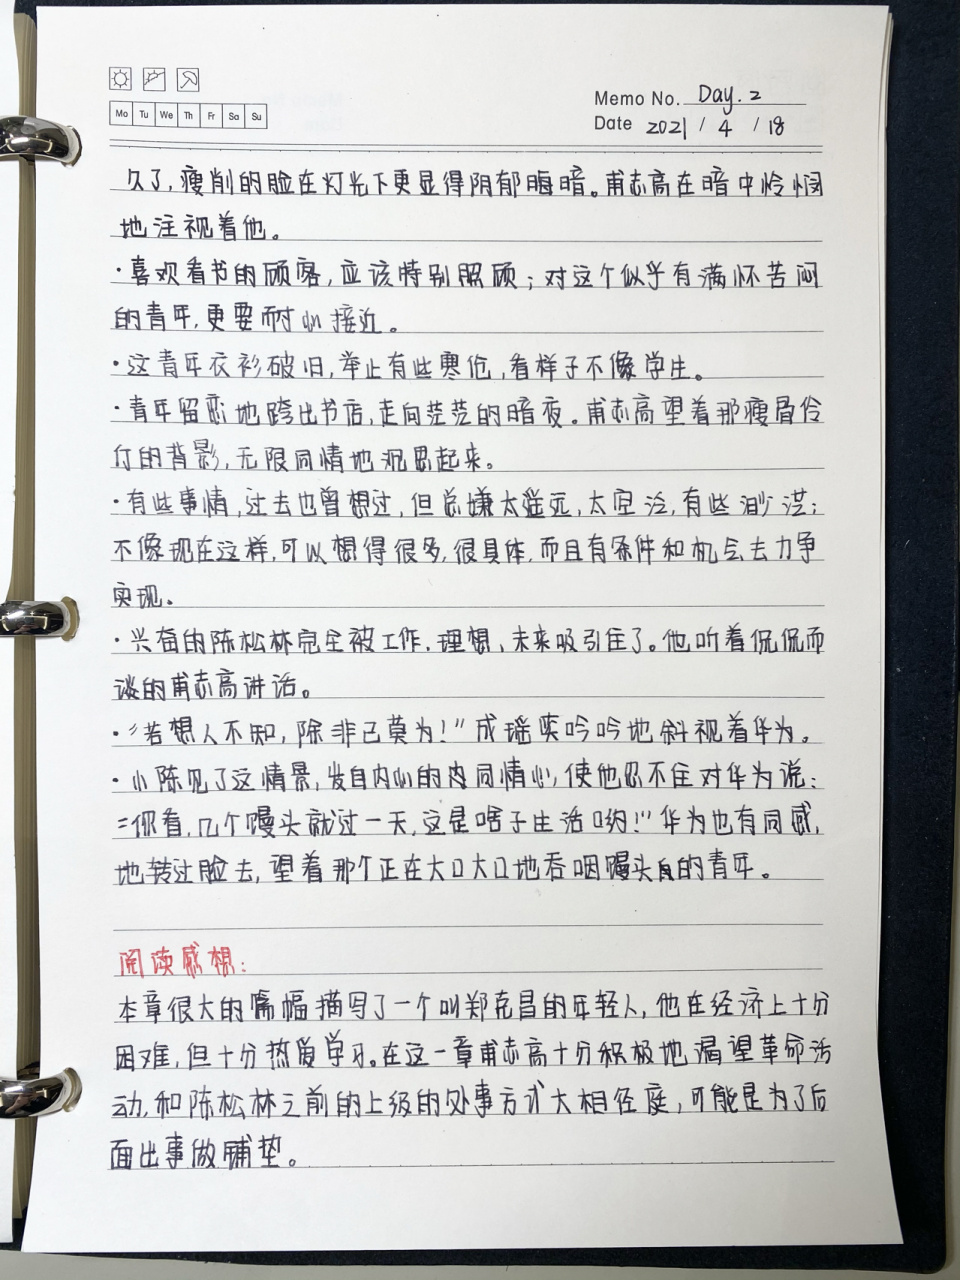 Memo No. Day. 2
Mo Tu We Th Fr Sa Su
Date 2021 / 4 / 18
久了,瘦削的脸在灯光下更显得阴郁晦暗。甫志高在暗中怜悯
地注视着他。
·喜欢看书的顾客,应该特别照顾;对这个似乎有满怀苦闷
的青年,更要耐心接近。
·这青年衣衫破旧,举止有些寒伧,看样子不像学生。
·青年留恋地跨出书店,走向茫茫的暗夜。甫志高望着那瘦骨伶
仃的背影,无限同情地沉思起来。
·有些事情,过去也曾想过,但总嫌太遥远,太空洽,有些渺茫;
不像现在这样,可以想得很多,很具体,而且有条件和机会去力争
实现。
·兴奋的陈松林完全被工作、理想、未来吸引住了。他听着侃侃而
谈的甫志高讲话。
·"若想人不知,除非己莫为!"成瑶笑吟吟地斜视着华为。
·小陈见了这情景,发自内心的同情心,使他忍不住对华为说:
"你看,几个馒头就过一天,这是啥子生活哟!"华为也有同感,
他转过脸去,望着那个正在大口大口地吞咽馒头的青年。
阅读感想:
本章很大的篇幅描写了一个叫郑克昌的年轻人,他在经济上十分
困难,但十分热爱学习。在这一章甫志高十分积极地渴望革命活
动,和陈松林之前的上级的处事方式大相径庭,可能是为了后
面出事做铺垫。